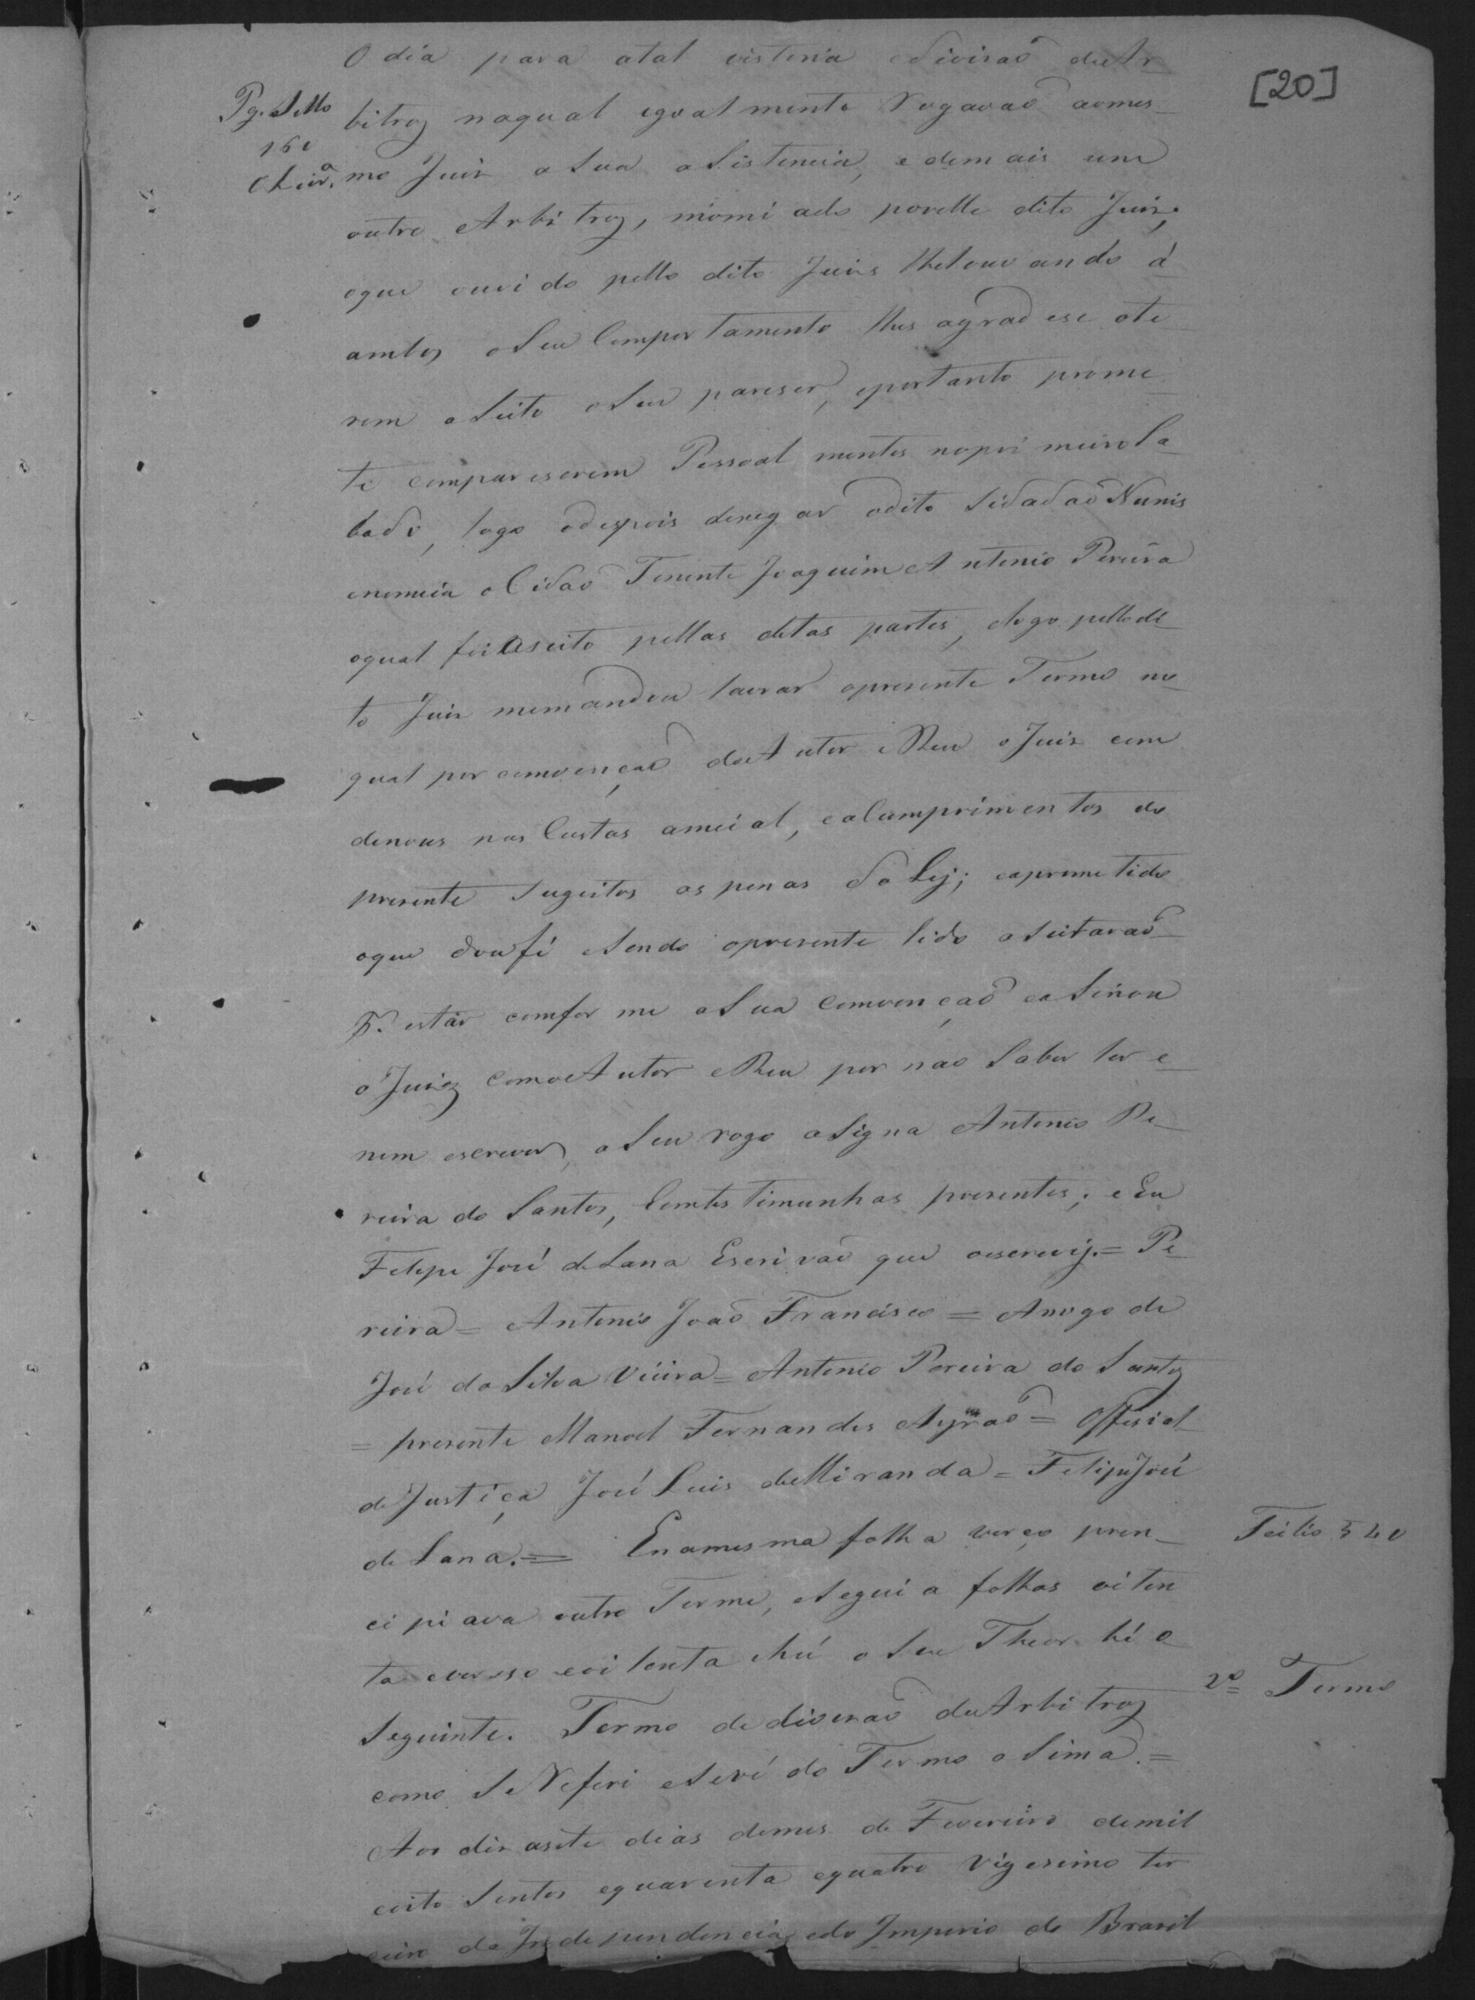 [20]
O dia para atal vistoria edivisaõ deAr-
Pg. Sello
160
bitroz naqual igoalmente Rogavaõ aomes-
mo Juis a Sua aSistencia, e demais um
outro Arbitroz, nomiado porelle dito Juis;
oque ouvido pello dito Juis lhelouvando á
ambos oSeu Comportamento lhes agradese ate
rem aSeito oSeu pareser, eportanto prome
te compareserem Pessoal mentes nopri meiroSa-
bado, logo odepois denegar odito SidadaõNunis
enomeia oCidaõ Tenente Joaquim Antonio Pereira
oqual foi aseito pellas ditas partes, elogo pellodi-
to Juis memandou lavrar opresente Termo no
qual por comvençaõ doAutor eReu oJuis com
denous nas Custas ameial, eaCumprimentos do
presente Sugeitos as penas da Lej; eaprometido
oque doufé eSendo opresente lido aSeitaraõ
P. estár comfor me aSua comvençaõ eaSinou
o Juiz comoAutor eReu por naõ Saber ler e-
nem escrever, aSeu rogo aSigna Antonio Pe-
reira do Santos, Comtestimunhas presentes; e Eu
Felipe José deLana Escrivaõ que oescrevij.= Pe-
reira = Antonio Joaõ Francisco = Arrogo de
José da Silva Viéira = Antonio Pereira do Santoz
= presente Manoel Fernandes Ayraõ = Offisial
deJustiça José Luis deMiranda = FelipeJosé
de Lana. = Enamesma folha verço prin-
Feitio 540
cipiava outro Termo, eSegui a folhas oiten
ta everso eoitenta ehú o Seu Theor hé o
Seguinte. Termo dedivisaõ deArbitroz
2º = Termo
como SeReferi eSevé do Termo aSima. =
Aos dizasete dias domes de Fevereiro demil
eoito Sentos equarenta equatro Vigesimo ter
ceiro da Independencia, edo Imperio do Brasil